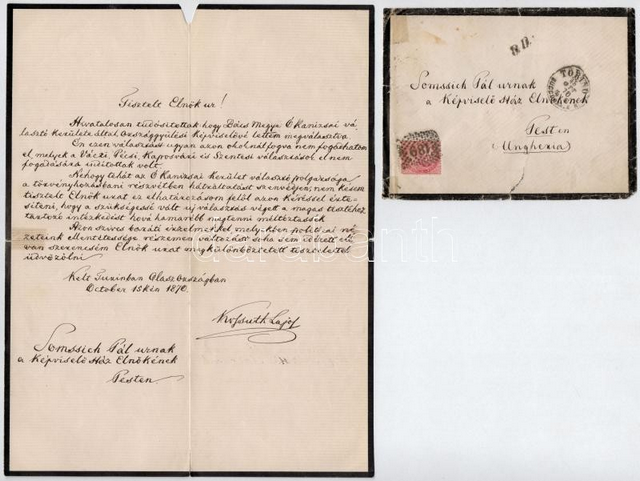 Tisztelt Elnök ur!
Hivatalosan tudósitottak hogy Bács Megye Ó Kanizsai vá-
lasztó kerülete által országgyülési képviselővé lettem megválasztva.
Ón ezen választást ugyan azon okoknálfogva nem fogadhatom
el melyek a Váczi, Pécsi, Kaposvári és Szentesi választások el nem
fogadására inditottak volt.
Nehogy tehát az Ó Kanizsai kerület választó polgársága
a törvényhozásbani részvétben hátráltatást szenvedjen, nem kesem
tisztelt Elnök urat ez elhatározásom felől azon kéréssel érte-
siteni, hogy a szükségessé vált uj választás végett a magas tisztéhez
tartozó intézkedést hová hamarébb megtenni méltóztassék
baráti érzelmekkel melyekben politikai né-
zeteink részemen változást soha sem idézett elő
van szerencsém Elnök urat megkülönböztetett tisztelettel
üdvözölni
Kelt Turinban Olaszországban
October 15kén 1870.
Kossuth Lajos
Somssich Pál urnak
a Képviselő Ház Elnökének
Pesten
P.D.
TORINO
Somssich Pál urnak
a Képviselő Ház Elnökének
Pesten
(Ungheria)
darabanth